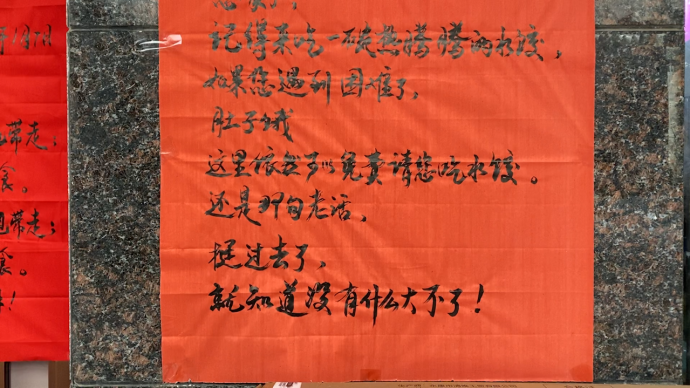 记得来吃一碗热腾腾的水饺，
如果您遇到困难了，
肚子饿
这里依然可以免费请您吃水饺。
还是那句老话，
挺过去了，
就知道没有什么大不了！
带走；
食。
带走；
食。